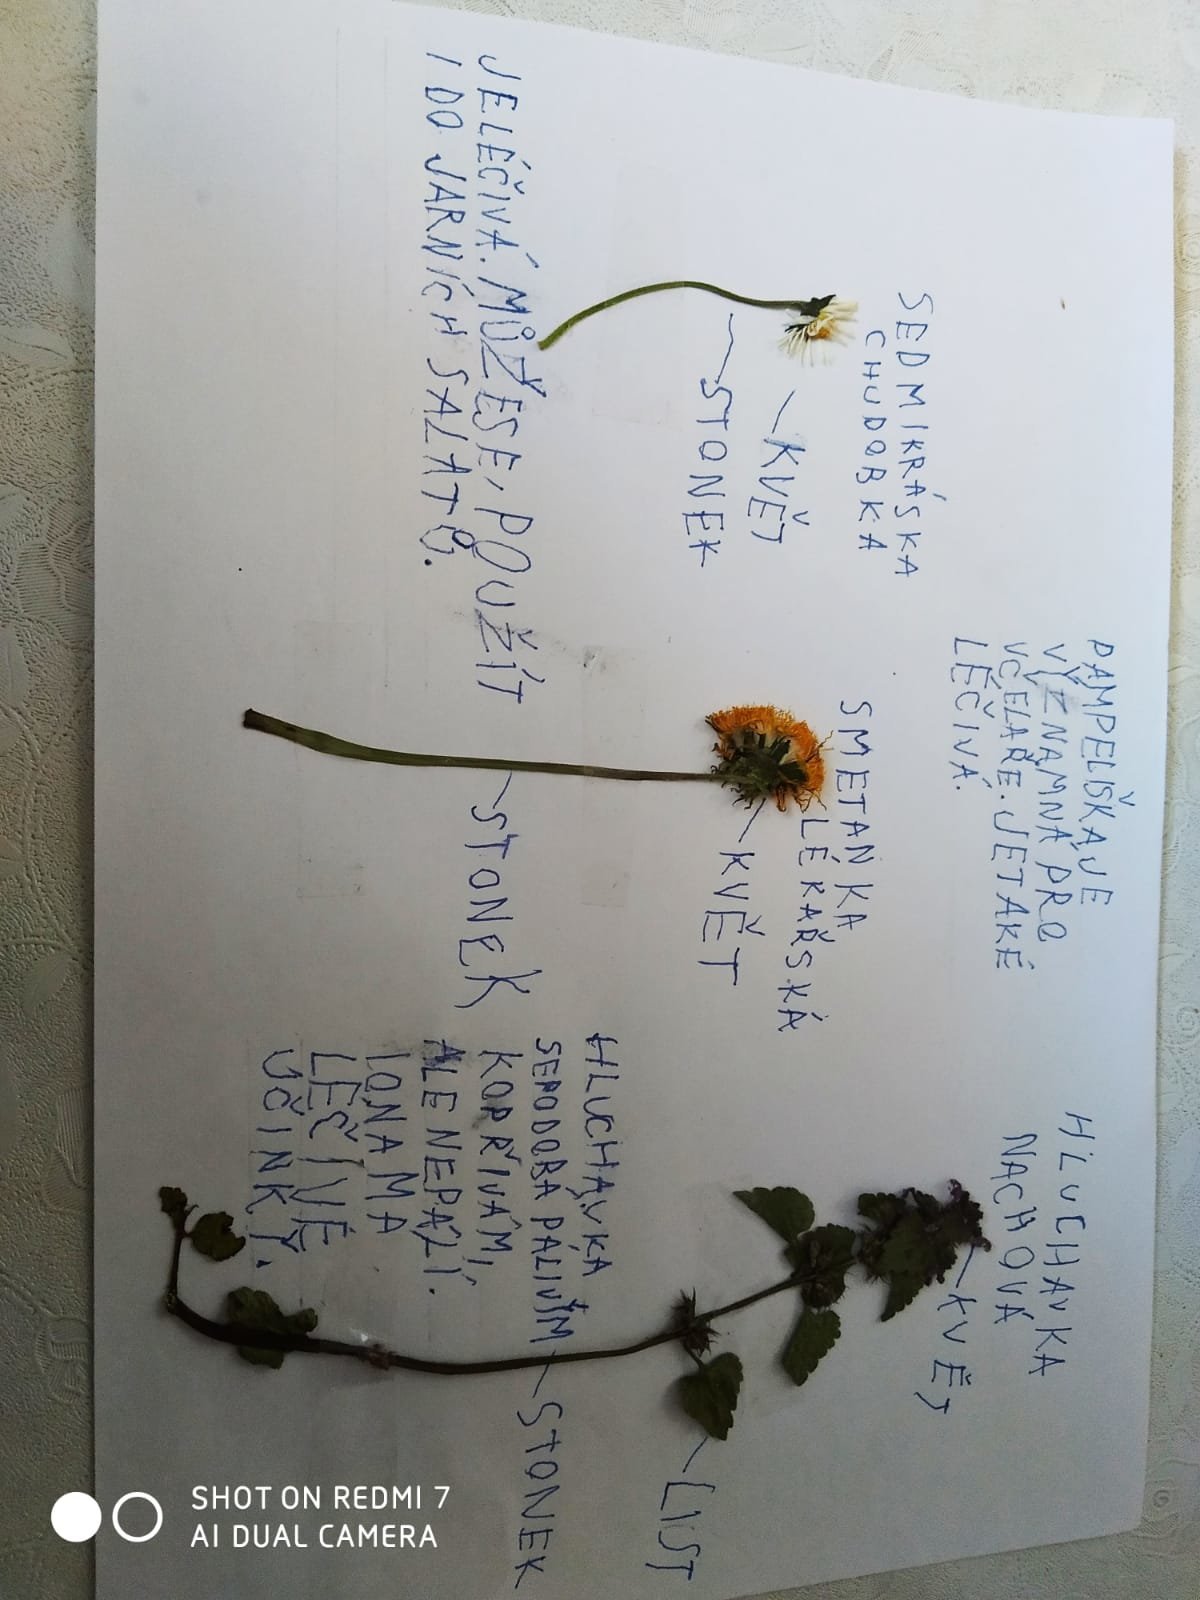 SEDMIKRÁSKA
CHUDOBKA
KVĚT
STONEK
JE LÉČIVÁ. MŮŽE SE, POUŽÍT
I DO JARNÍCH SALÁTŮ.
PAMPELIŠKA JE
VÝZNAMNÁ PRO
VČELAŘE. JE TAKÉ
LÉČIVÁ.
SMETANKA
LÉKAŘSKÁ
KVĚT
STONEK
HLUCHAVKA
NACHOVÁ
KVĚT
LIST
STONEK
HLUCHAVKA
SE PODOBÁ PÁLIVÝM
KOPŘIVÁM,
ALE NEPÁLÍ.
I ONA MÁ
LÉČIVÉ
ÚČINKY.
SHOT ON REDMI 7
AI DUAL CAMERA